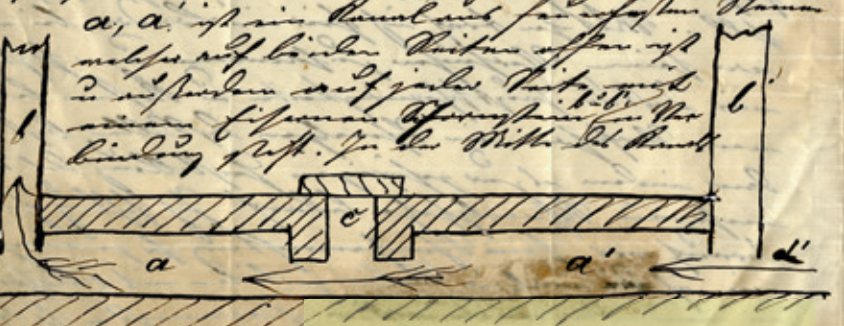 a, a' ist ein Kanal aus feuerfesten Steinen
welcher auf beiden Seiten offen ist
u außerdem auf jeder Seite mit
einem Eisernen Schornstein b u b' in Ver
bindung steht. In der Mitte des Kanals
b
b'
c
a
a'
d'